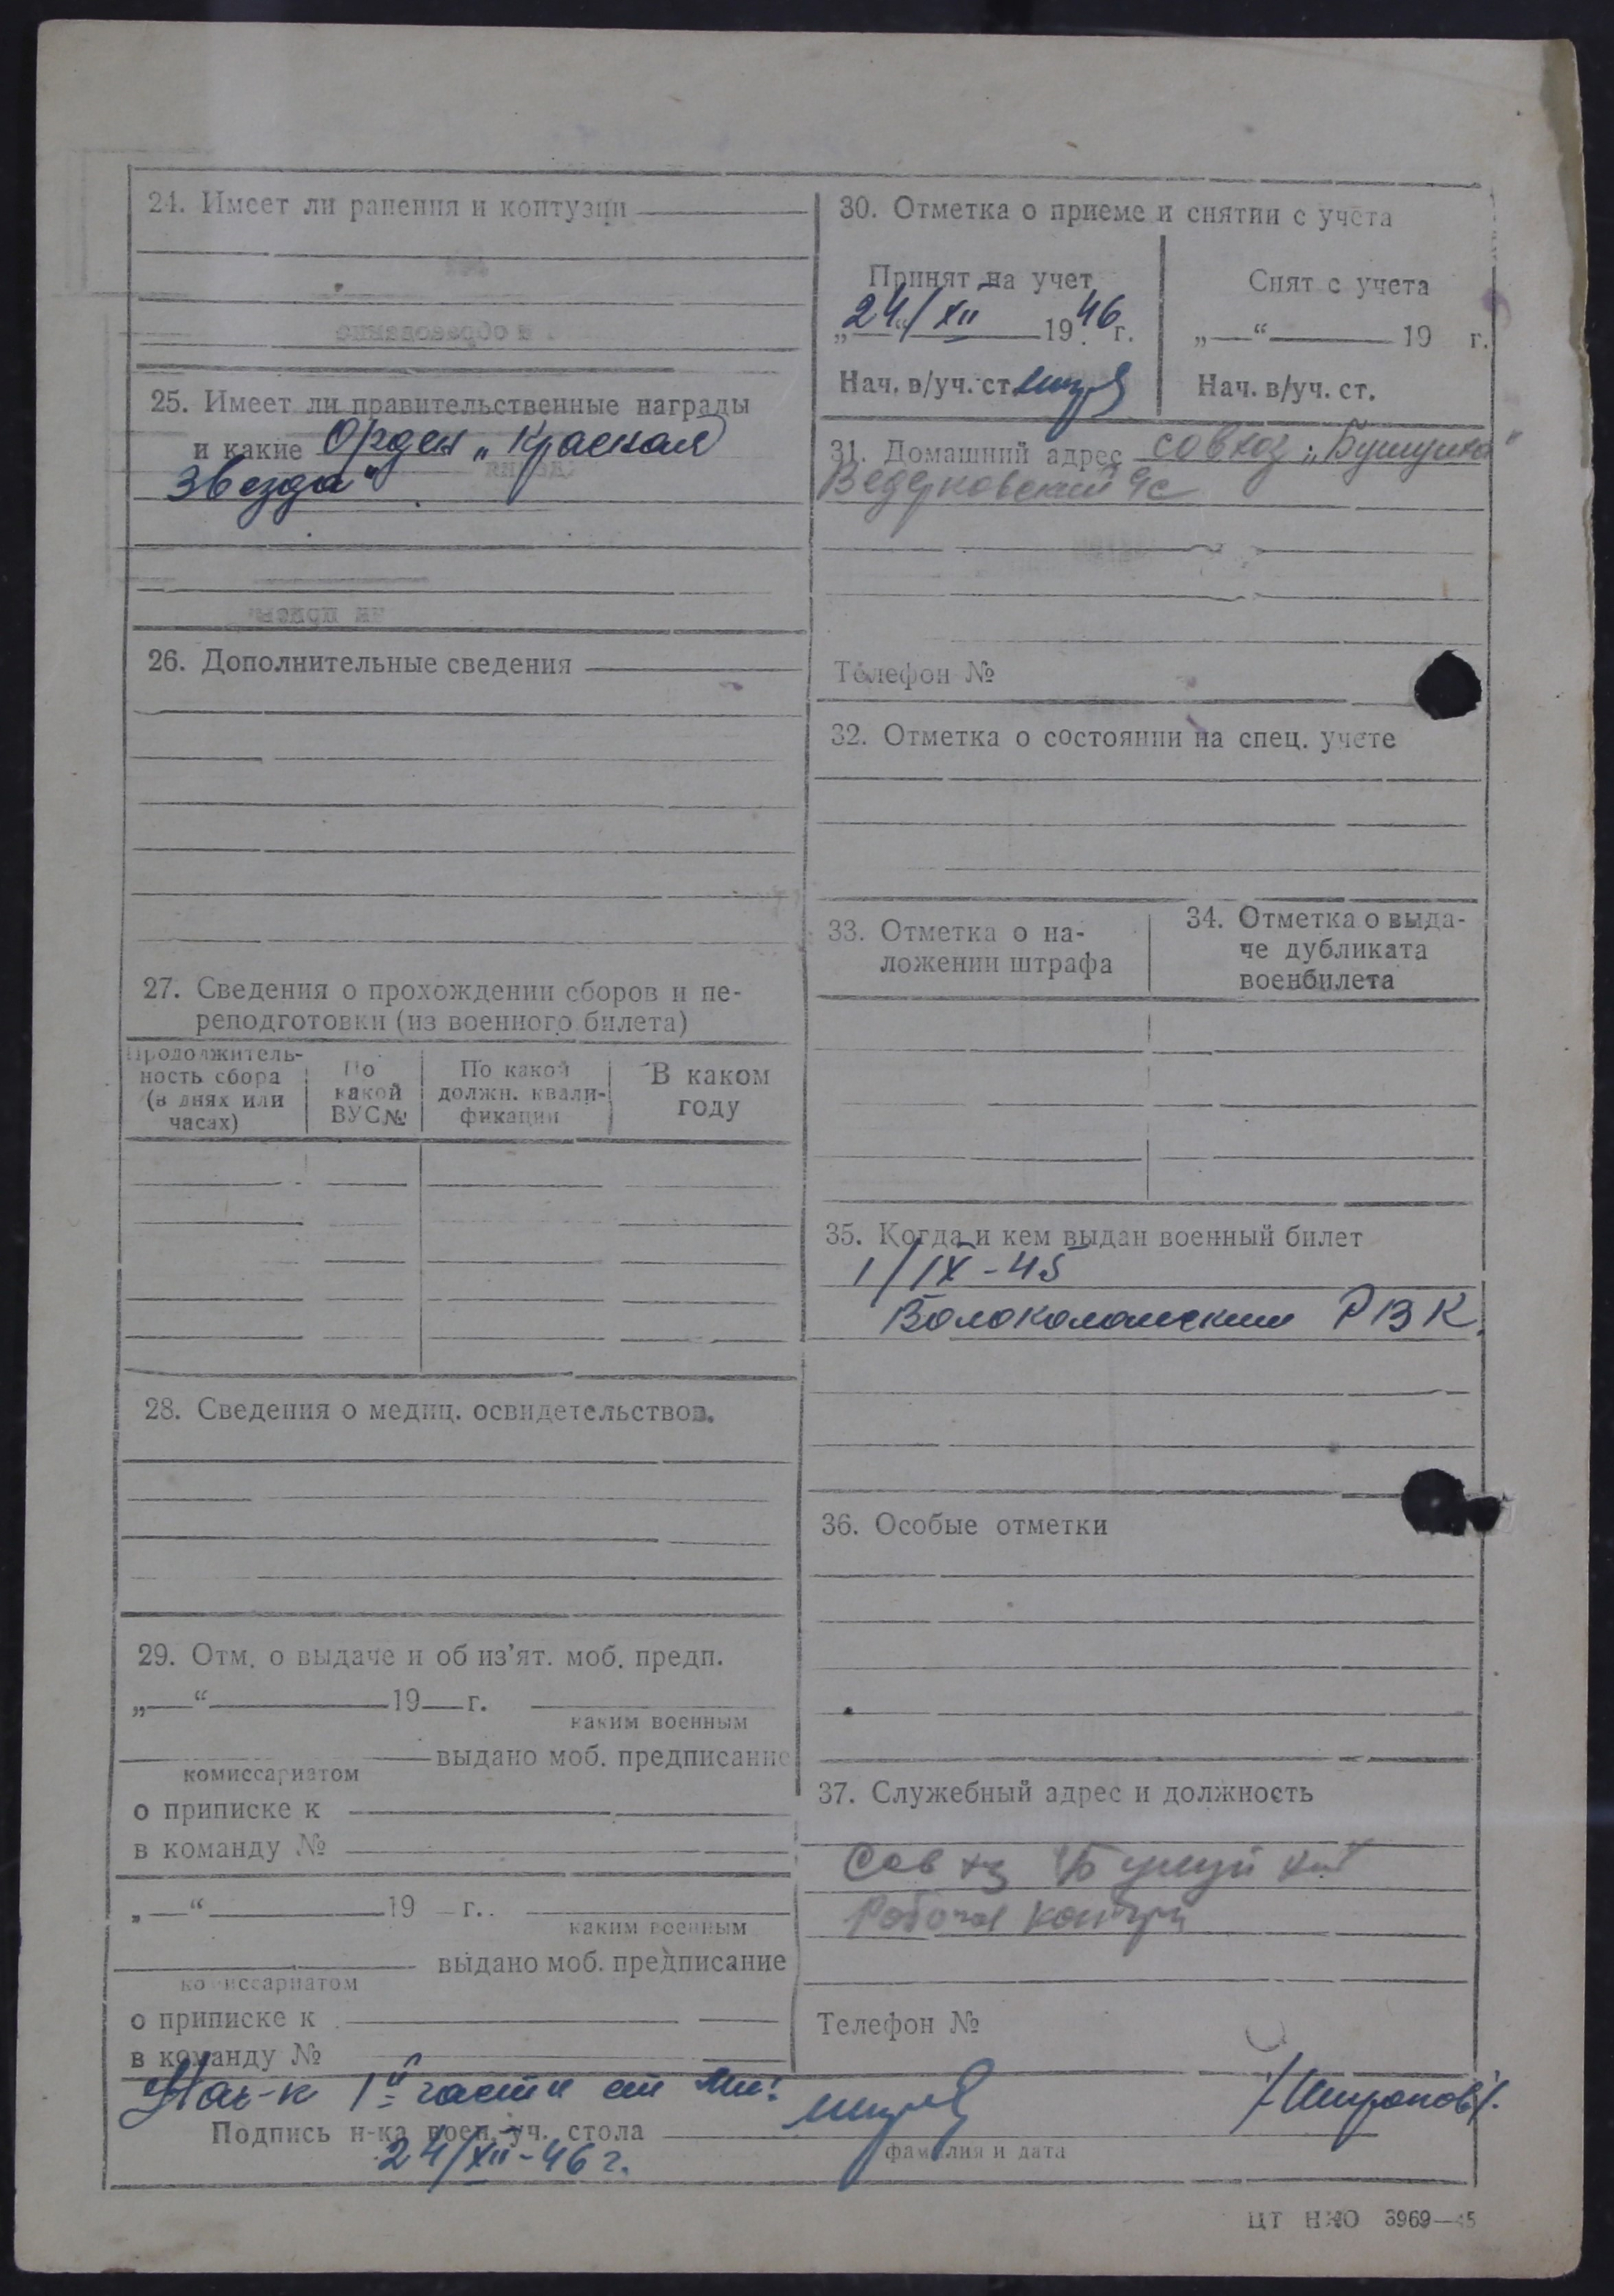 24. Имеет ли ранения и контузии
25. Имеет ли правительственные награды
и какие Орден „Красная
Звезда"
26. Дополнительные сведения
27. Сведения о прохождении сборов и пе-
реподготовки (из военного билета)
Продолжитель-
ность сбора
(в днях или
часах)
По
какой
ВУС №
По какой
должн. квали-
фикации
В каком
году
28. Сведения о медиц. освидетельствов.
29. Отм. о выдаче и об из'ят. моб. предп.
„—“ 19 г.
каким военным
выдано моб. предписание
комиссариатом
о приписке к
в команду №
„—“ 19 г.
каким военным
выдано моб. предписание
комиссариатом
о приписке к
в команду №
30. Отметка о приеме и снятии с учета
Принят на учет
„24“/XII 1946 г.
Нач. в/уч. ст.
Снят с учета
„—“ 19 г.
Нач. в/уч. ст.
31. Домашний адрес совхоз
Ведерковский с/с
Телефон №
32. Отметка о состоянии на спец. учете
33. Отметка о на-
ложении штрафа
34. Отметка о выда-
че дубликата
военбилета
35. Когда и кем выдан военный билет
1/IX-45
Волоколамским РВК.
36. Особые отметки
37. Служебный адрес и должность
Совхз
Телефон №
Нач-к 1й части
Подпись н-ка воен.-уч. стола
24/XII-46 г.
фамилия и дата
ЦТ НКО 3969—45